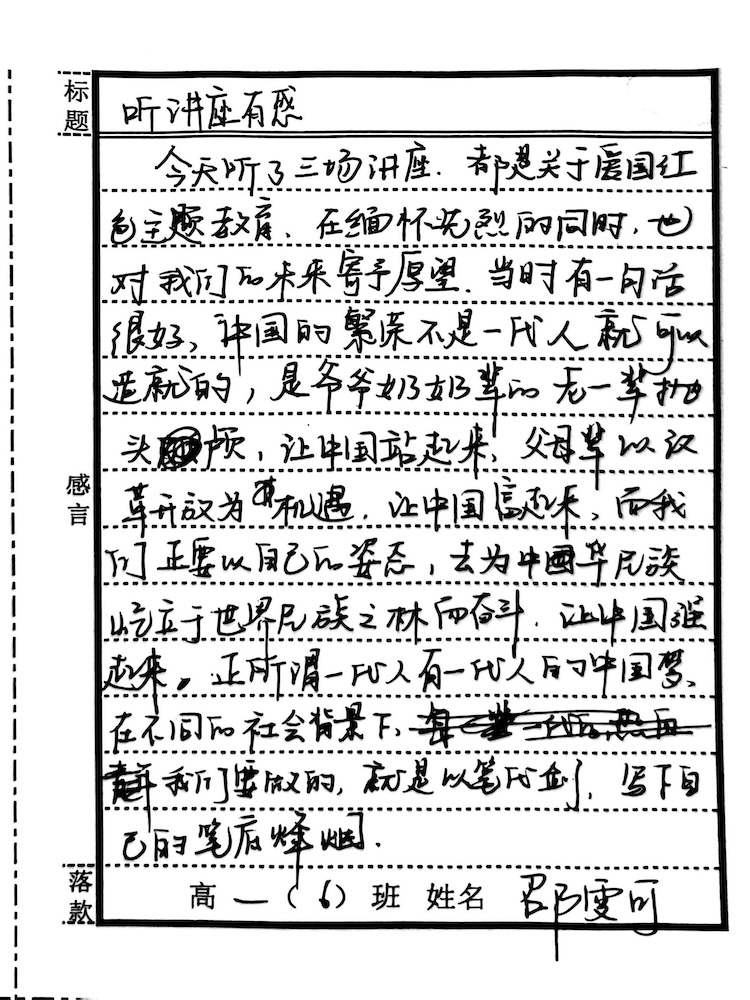 标题
听讲座有感
今天听了三场讲座、都是关于爱国红
色主题教育、在缅怀先烈的同时,也
对我们的未来寄予厚望、当时有一句话
很好、中国的繁荣不是一代人就可以
造就的,是爷爷奶奶辈的老一辈抛
头颅,让中国站起来,父母辈以改
革开放为机遇、让中国富起来、而我
们正要以自己的姿态,去为中国华民族
屹立于世界民族之林而奋斗、让中国强
起来。正所谓一代人有一代人的中国梦、
在不同的社会背景下、
我们要做的,就是以笔代剑、写下自
己的笔底烽烟.
感言
落款
高一(6)班 姓名 邵雯可